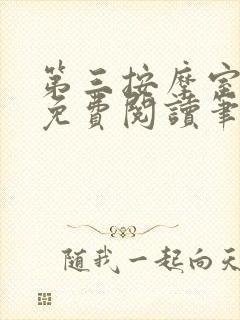 第三按摩室
免費閱讀筆
随我一起向天